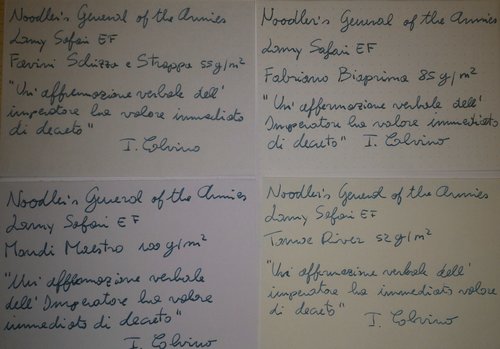 Noodler's General of the Armies
Lamy Safari EF
Favini Schizza e Strappa 55 g/m²
"Un'affermazione verbale dell'
imperatore ha valore immediato
di decreto"
I. Calvino
Noodler's General of the Armies
Lamy Safari EF
Fabriano Bioprima 85 g/m²
"Un'affermazione verbale dell'
Imperatore ha valore immediato
di decreto" I. Calvino
Noodler's General of the Armies
Lamy Safari EF
Mondi Maestro 100 g/m²
"Un'affermazione verbale
dell'Imperatore ha valore
immediato di decreto"
I. Calvino
Noodler's General of the Armies
Lamy Safari EF
Tomoe River 52 g/m²
"Un'affermazione verbale dell'
imperatore ha immediato valore
di decreto"
I. Calvino